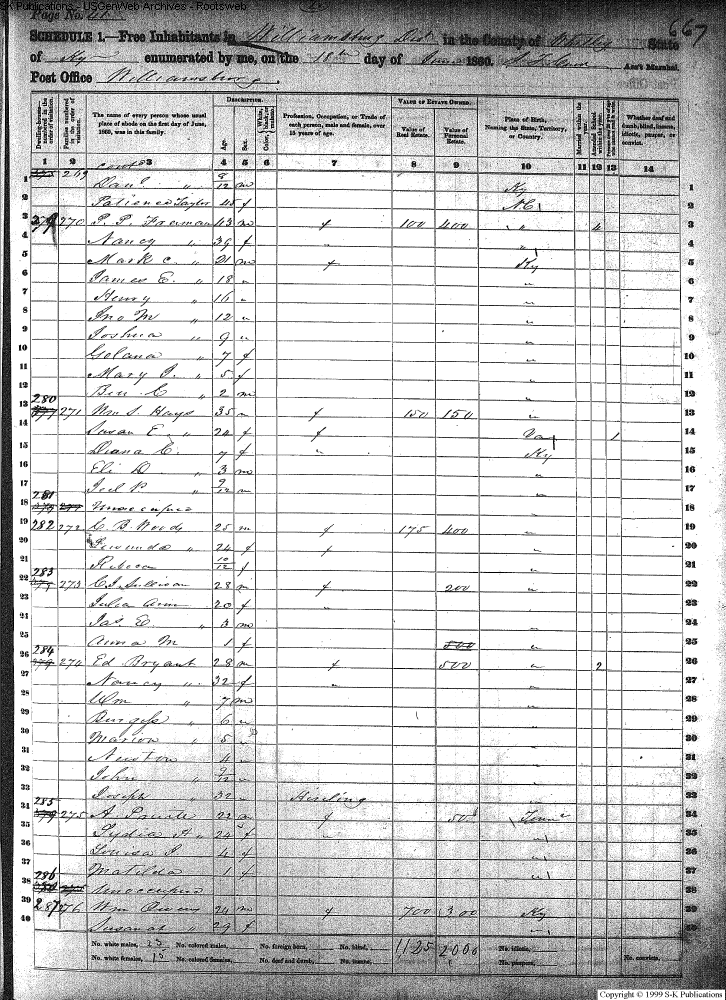 S-K Publications - USGenWeb Archives - Rootsweb
Page No. 667
SCHEDULE 1.—Free Inhabitants in Williamsburg Dist in the County of Whitley State
of Ky enumerated by me, on the 18th day of June 1860. Ass't Marshal.
Post Office Williamsburg
Dwelling-houses—numbered in the order of visitation. Families numbered in the order of visitation. The name of every person whose usual place of abode on the first day of June, 1860, was in this family. DESCRIPTION. Age. Sex. Color, Profession, Occupation, or Trade of each person, male and female, over 15 years of age. VALUE OF ESTATE OWNED. Value of Real Estate. Value of Personal Estate. Place of Birth, Naming the State, Territory, or Country. Married within the year. Attended School within the year. Whether deaf and dumb, blind, insane, idiotic, pauper, or convict.
1 2 3 4 5 6 7 8 9 10 11 12 13 14
1 269 Danl " 8/12 m Ky 1
2 Patience Taylor 45 f NC 2
3 270 P. P. Freeman 43 m f 100 400 " 4 3
4 Nancy " 39 f " " 4
5 Mark C. " 21 m f Ky 5
6 James E. " 18 " " 6
7 Henry " 16 " " 7
8 Jno M " 12 " " 8
9 Joshua " 9 " " 9
10 Golana " 7 f " 10
11 Mary J. " 5 f " 11
12 Ben C " 2 m " 12
13 280 271 Wm S. Hays 35 m f 150 150 " 13
14 Susan E. " 24 f f Va 1 14
15 Diana E. " 7 f " Ky 15
16 Eli D. " 3 m " 16
17 Joel P. " 9/12 m " 17
18 281 Unoccupied 18
19 282 272 C. B. Woods 25 m f 175 400 " 19
20 " 24 f f " 20
21 Rebecca 10/12 f " 21
22 283 273 C J Sullivan 28 m f 200 " 22
23 Julia Ann 20 f " " 23
24 Jas. E. " 3 m " 24
25 Anna M 1 f 500 " 25
26 284 274 Ed Bryant 28 m f 500 " 2 26
27 Nancy " 32 f " " 27
28 Wm " 7 m " 28
29 Burgess " 6 " " 29
30 Marion " 5 " " 30
31 Newton 4 " " 31
32 John " " " 32
33 Joseph " 32 " Hireling " 33
34 285 275 A 22 m f 50 Tenne 34
35 Lydia A " 24 f " " 35
36 Louisa J 4 f " 36
37 Matilda 1 f " 37
38 286 Unoccupied 38
39 287 276 Wm Owens 24 m f 700 300 Ky 39
40 Susanah " 29 f " 40
No. white males, 25 No. colored males, No. foreign born, No. blind, 1125 2000 No. idiotic,
No. white females, 15 No. colored females, No. deaf and dumb, No. insane, No. paupers, No. convicts,
Copyright © 1999 S-K Publications